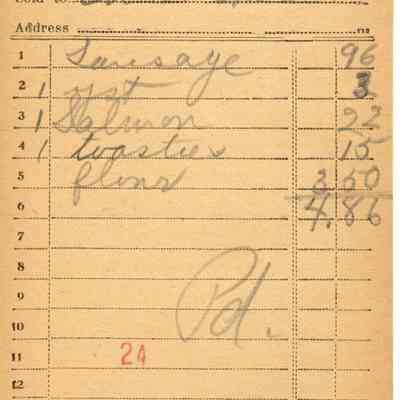 Sold to
Address
1 Sausage 96
2 1 yst 3
3 1 Salmon 22
4 1 toasties 15
5 flour 3 50
6 4.86
7
8
9 Pd.
10
11 24
12